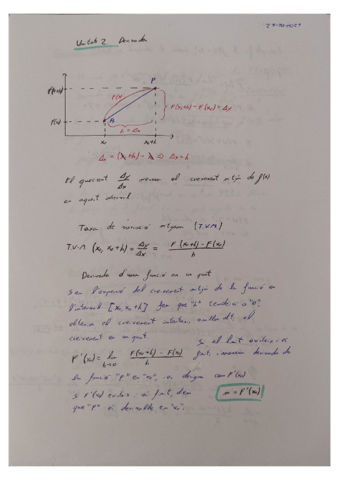 Unitat 2 Derivades
P
f(x)
A
f(x₀+h) - f(x₀) = Δx
h = Δx
x₀
x₀+h
El quocient Δy/Δx mesura el creixement mitjà de f(x)
en aquest interval.
Taxa de variació mitjana (T.V.M)
T.V.M (x₀, x₀+h) = Δy/Δx = f(x₀+h) - f(x₀)/h
Derivada d'una funció en un punt
del creixement mitjà de la funció en
l'interval [x₀, x₀+h] fem que "h" tendeix a "0",
creixement en un punt.
f'(x₀) = lim h→0 f(x₀+h) - f(x₀)/h
Si el límit existeix, i és
finit, derivada de
la funció "f" en "x₀", i es designa com f'(x₀)
si f'(x₀) existeix i és finit, diem
que "f" és derivable en "x₀".
m = f'(x₀)